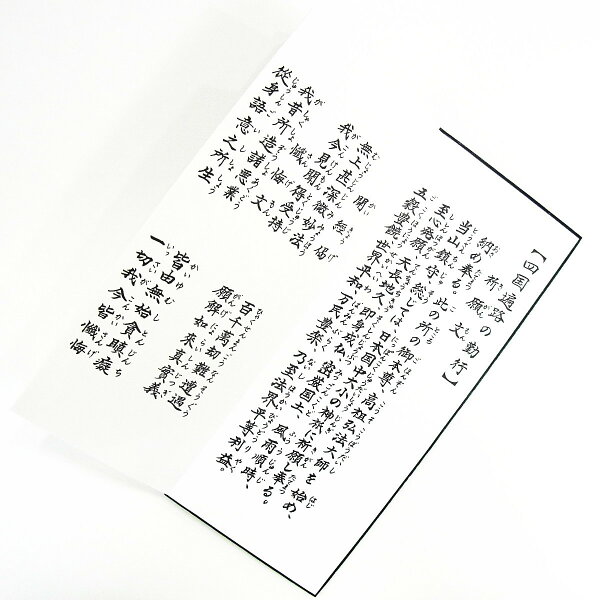 【四国遍路の勤行】
祈願文
納め奉る此の所の御本尊、高祖弘法大師を始め、
当山鎮守総じては日本国中大小の神祇に祈願し奉る。
至心発願天長地久、即身成仏、密厳国土、風雨順時、
五穀豊饒世界平和、万民豊楽、乃至法界平等利益。
開経偈
無上甚深微妙法 百千萬劫難遭遇
我今見聞得受持 願解如来真實義
懺悔文
我昔所造諸悪業 皆由無始貪瞋癡
從身語意之所生 一切我今皆懺悔